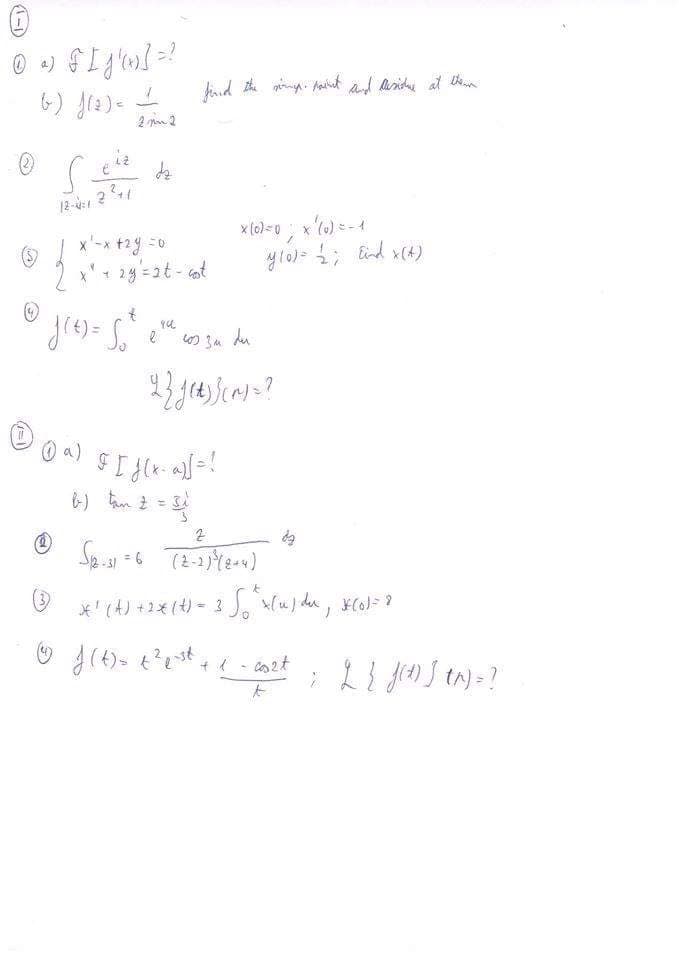 I
① a) F[f'(x)] = ?
b) f(z) = 1/(z sin z) find the singr. point and Residue at them
② ∫|z-i|=1 e^(iz)/(z²+1) dz
x(0)=0 ; x'(0)=-1
③ { x'-x+2y=0 y(0)=1/2 ; Find x(t)
x"+2y'=2t-cost
④ f(t)=∫₀^t e^(4u) cos 3u du
L{f(t)}(s)=?
II
① a) F[f(x-a)]=?
b) tan z = 3i/5
② ∫|z-3|=6 z/((z-2)³(z+4)) dz
③ x'(t)+2x(t)=3∫₀^t x(u)du, x(0)=8
④ f(t)=t²e^(-3t)+(1-cos2t)/t ; L{f(t)}(s)=?